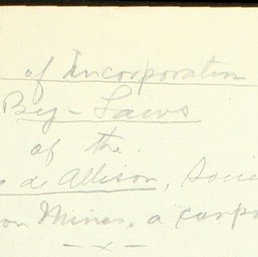 of Incorporation
By-Laws
of the
de Allison, Socie
on Mines, a corpo
-x-